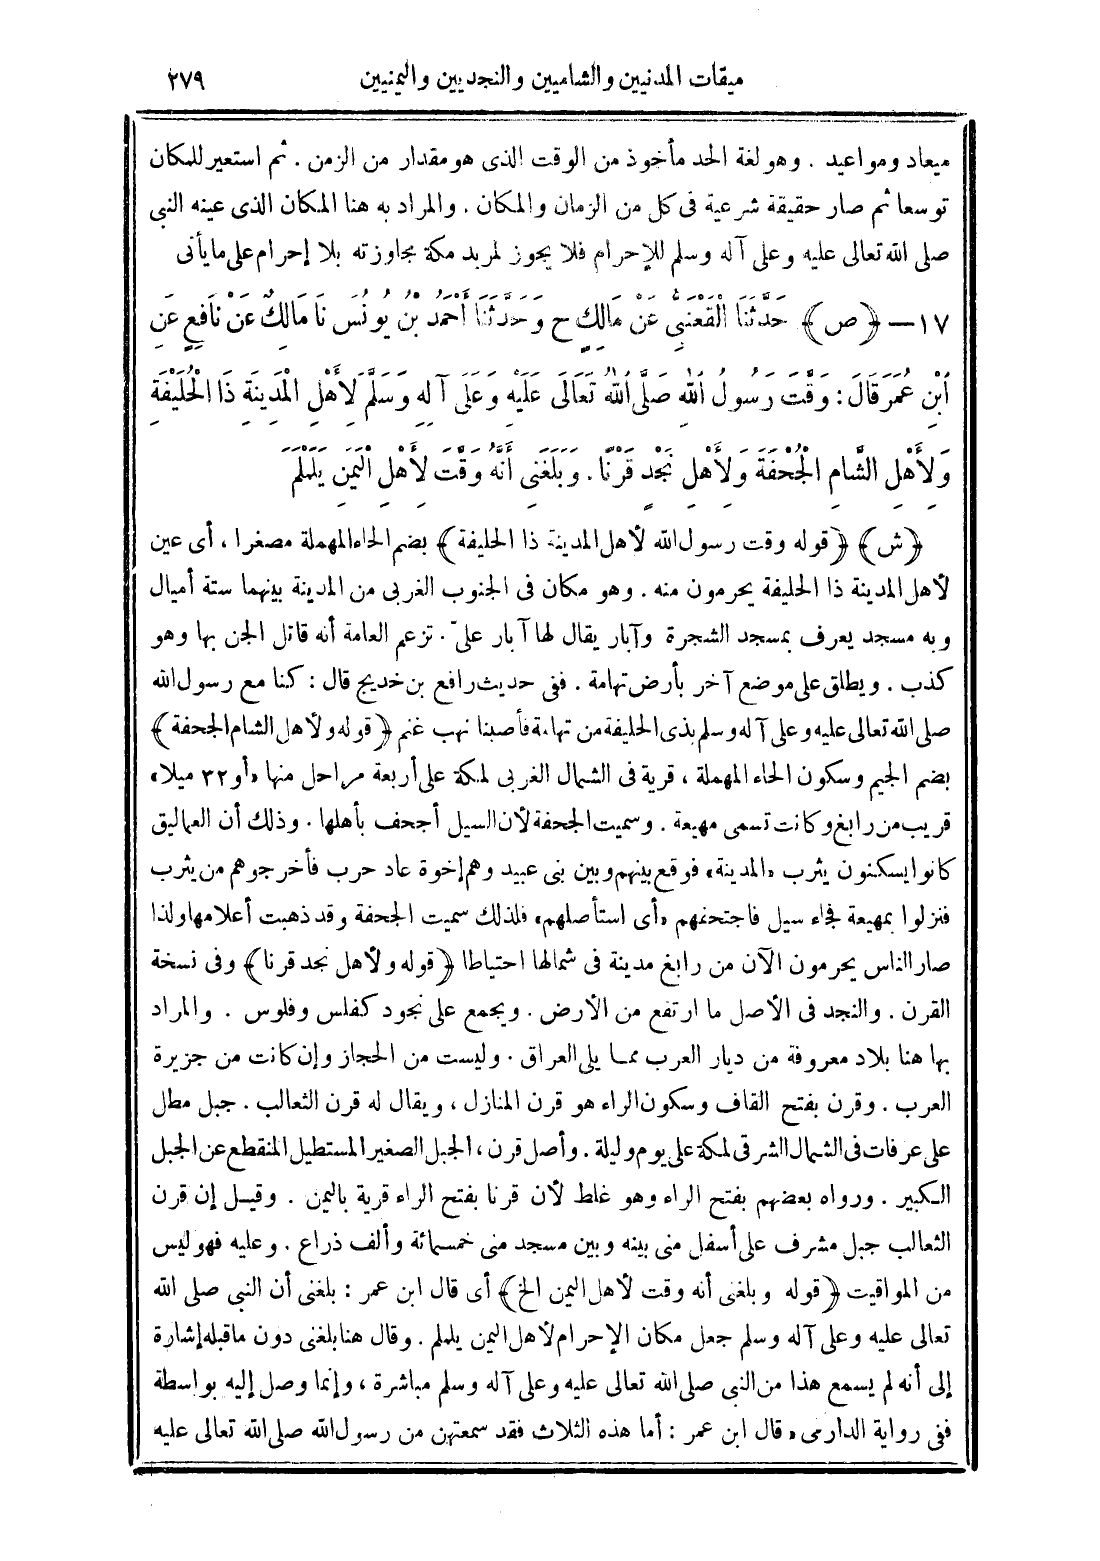 ميقات المدنيين والشاميين والنجديين واليمنيين ٢٧٩
ميعاد ومواعيد . وهو لغة الحد مأخوذ من الوقت الذى هو مقدار من الزمن . ثم استعير للمكان
توسعا ثم صار حقيقة شرعية فى كل من الزمان والمكان . والمراد به هنا المكان الذى عينه النبى
صلى الله تعالى عليه وعلى آله وسلم للإحرام فلا يجوز لمريد مكة مجاوزته بلا إحرام على ما يأتى
١٧ — ﴿ص﴾ حَدَّثَنَا الْقَعْنَبِىُّ عَنْ مَالِكٍ ح وَحَدَّثَنَا أَحْمَدُ بْنُ يُونُسَ نَا مَالِكٌ عَنْ نَافِعٍ عَنِ
ابْنِ عُمَرَ قَالَ : وَقَّتَ رَسُولُ اللهِ صَلَّى اللهُ تَعَالَى عَلَيْهِ وَعَلَى آلِهِ وَسَلَّمَ لِأَهْلِ الْمَدِينَةِ ذَا الْحُلَيْفَةِ
وَلِأَهْلِ الشَّامِ الْجُحْفَةَ وَلِأَهْلِ نَجْدٍ قَرْنًا . وَبَلَغَنِى أَنَّهُ وَقَّتَ لِأَهْلِ الْيَمَنِ يَلَمْلَمَ
﴿ش﴾ ﴿قوله وقت رسول الله لأهل المدينة ذا الحليفة﴾ بضم الحاء المهملة مصغرا ، أى عين
لأهل المدينة ذا الحليفة يحرمون منه . وهو مكان فى الجنوب الغربى من المدينة بينهما ستة أميال
وبه مسجد يعرف بمسجد الشجرة وآبار يقال لها آبار علىّ . تزعم العامة أنه قاتل الجن بها وهو
كذب . ويطلق على موضع آخر بأرض تهامة . ففى حديث رافع بن خديج قال : كنا مع رسول الله
صلى الله تعالى عليه وعلى آله وسلم بذى الحليفة من تهامة فأصبنا نهب غنم ﴿قوله ولأهل الشام الجحفة﴾
بضم الجيم وسكون الحاء المهملة ، قرية فى الشمال الغربى لمكة على أربعة مراحل منها «أو ٣٢ ميلا»
قريب من رابغ وكانت تسمى مهيعة . وسميت الجحفة لأن السيل أجحف بأهلها . وذلك أن العماليق
كانوا يسكنون يثرب «المدينة» فوقع بينهم وبين بنى عبيد وهم إخوة عاد حرب فأخرجوهم من يثرب
فنزلوا بمهيعة فجاء سيل فاجتحفهم «أى استأصلهم» فلذلك سميت الجحفة وقد ذهبت أعلامها ولذا
صار الناس يحرمون الآن من رابغ مدينة فى شمالها احتياطا ﴿قوله ولأهل نجد قرنا﴾ وفى نسخة
القرن . والنجد فى الأصل ما ارتفع من الأرض . ويجمع على نجود كفلس وفلوس . والمراد
بها هنا بلاد معروفة من ديار العرب مما يلى العراق . وليست من الحجاز وإن كانت من جزيرة
العرب . وقرن بفتح القاف وسكون الراء هو قرن المنازل ، ويقال له قرن الثعالب . جبل مطل
على عرفات فى الشمال الشرقى لمكة على يوم وليلة . وأصل قرن ، الجبل الصغير المستطيل المنقطع عن الجبل
الكبير . ورواه بعضهم بفتح الراء وهو غلط لأن قرنا بفتح الراء قرية باليمن . وقيل إن قرن
الثعالب جبل مشرف على أسفل منى بينه وبين مسجد منى خمسمائة وألف ذراع . وعليه فهو ليس
من المواقيت ﴿قوله وبلغنى أنه وقت لأهل اليمن الخ﴾ أى قال ابن عمر : بلغنى أن النبى صلى الله
تعالى عليه وعلى آله وسلم جعل مكان الإحرام لأهل اليمن يلملم . وقال هنا بلغنى دون ماقبله إشارة
إلى أنه لم يسمع هذا من النبى صلى الله تعالى عليه وعلى آله وسلم مباشرة ، وإنما وصل إليه بواسطة
ففى رواية الدارمى «قال ابن عمر : أما هذه الثلاث فقد سمعتهن من رسول الله صلى الله تعالى عليه